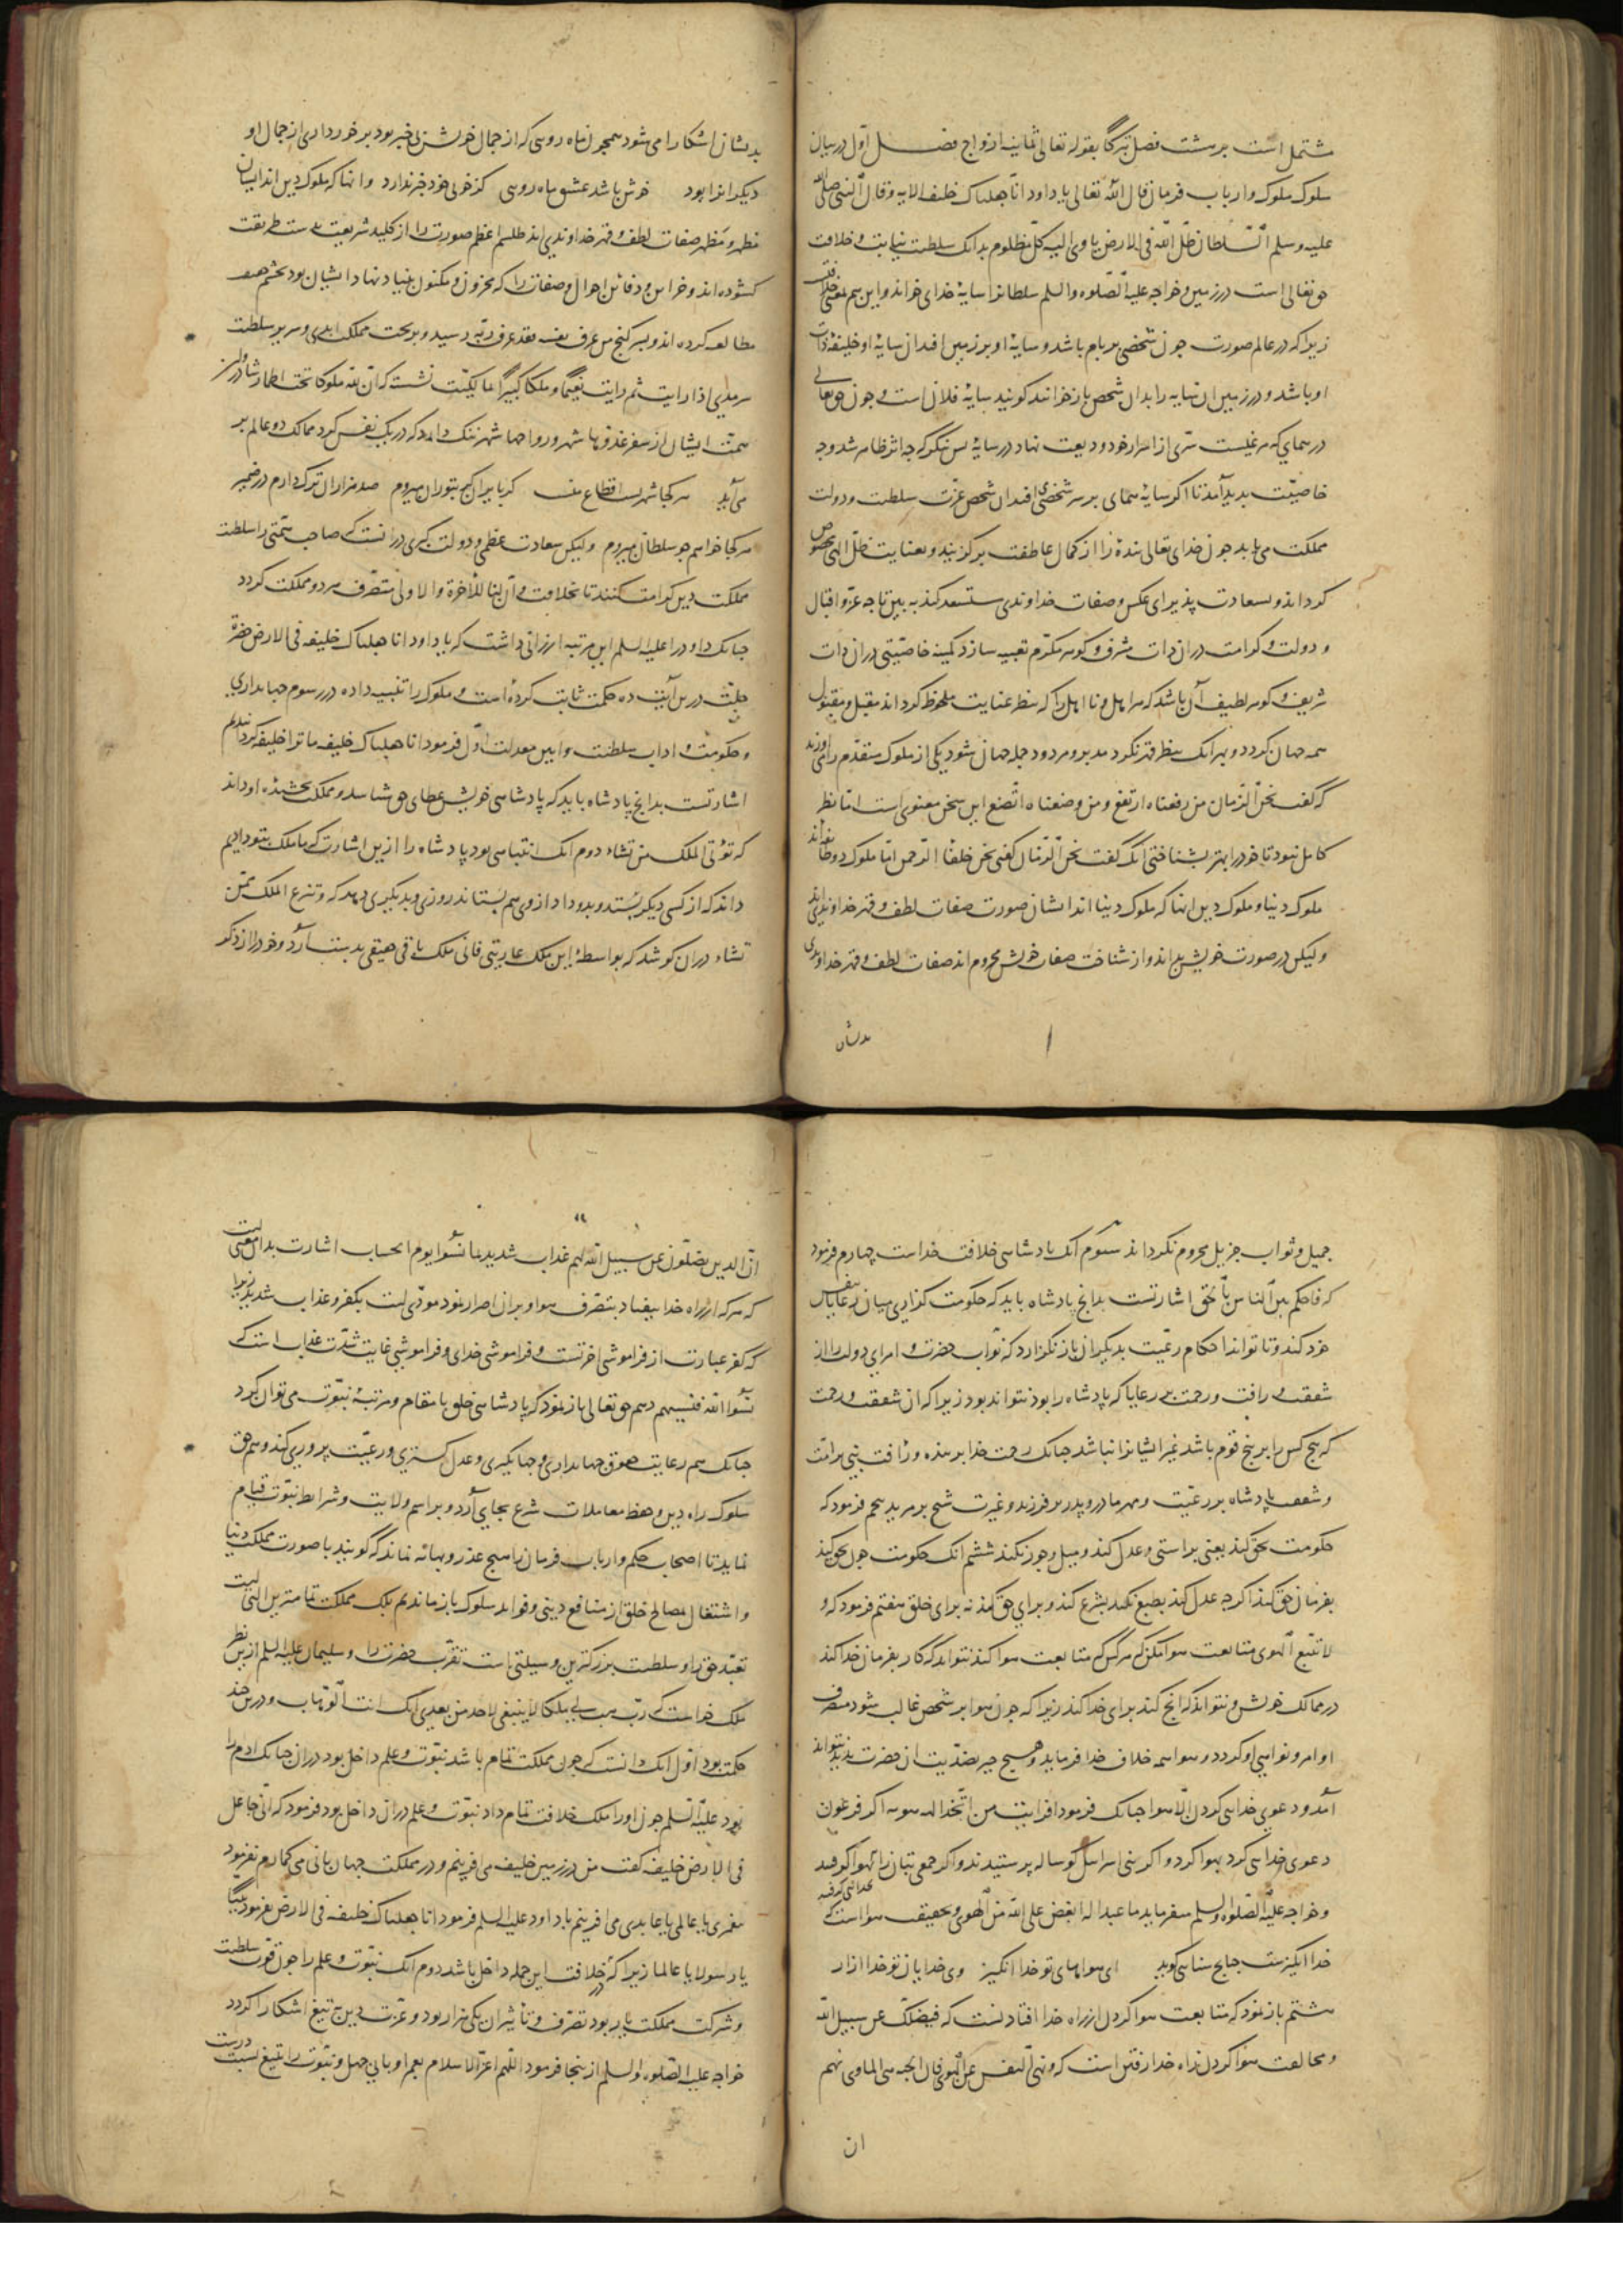 مشتمل است بر هشت فصل تبرکا بقوله تعالی ثمانیه ازواج فصل اول در بیان
سلوک ملوک و ارباب فرمان قال الله تعالی یا داود انا جعلناک خلیفه الایه و قال النبی صلی الله
علیه و سلم السلطان ظل الله فی الارض یاوی الیه کل مظلوم بدانک سلطنت نیابت و خلافت
حق تعالی است در زمین و خواجه علیه الصلوه والسلم سلطانرا سایۀ خدای خواند و این هم بمعنی خلافت
زیرا که در عالم صورت جون شخصی بر بام باشد و سایۀ او بر زمین افتد ان سایۀ او خلیفۀ ذات
او باشد و در زمین ان سایه را بدان شخص بازخوانند کویند سایۀ فلان است و جون حق تعالی
در همای که مرغیست سری از اسرار خود ودیعت نهاد در سایۀ بس بنکر که جه اثر ظاهر شد و جه
خاصیت بدید آمد تا اکر سایۀ همای بر سر شخصی افتد ان شخص عزت سلطنت و دولت
مملکت می یابد جون خدای تعالی بندۀ را از کمال عاطفت برکزیند و بعنایت ظل الهی مخصوص
کرداند و بسعادت پذیرای عکس و صفات خداوندی مستسعد کند ببین تا جه عز و اقبال
و دولت و کرامت در ان ذات مشرف و کوهر مکرم تعبیه سازد کمینه خاصیتی در ان ذات
شریف و کوهر لطیف آن باشد که هر اهل و نااهل را که بنظر عنایت ملحوظ کرداند مقبل و مقبول
همه جهان کردد و بهر انک بنظر قهر نکرد مدبر و مردود جمله جهان شود یکی از ملوک متقدم را می اورند
که گفت نحن الزمان من رفعناه ارتفع و من وضعناه اتضع این سخن معنوی است اما نظر
کامل نبود تا خود را بهتر بشناختی انک گفت نحن الزمان گفتی نحن خلفا الرحمن اما ملوک دو طایفه اند
ملوک دنیا و ملوک دین انها که ملوک دنیا اند ایشان صورت صفات لطف و قهر خداوندی اند
و لیکن در صورت خویش بند اند و از شناخت صفات خویش محروم اند صفات لطف و قهر خداوندی
بدیشان
بدیشان اشکارا می شود همجون ماه رویی که از جمال خویش بی خبر بود برخورداری از جمال او
دیکرانرا بود خوش باشد عشق ماه رویی کز خوبی خود خبر ندارد و انها که ملوک دین اند ایشان
مظهر و مظهر صفات لطف و قهر خداوندی اند طلسم اعظم صورت را از کلید شریعت بدست طریقت
کشوده اند و خزاین و دفاین احوال و صفات را که مخزون و مکنون بنیاد نهاد ایشان بود بچشم حقیقت
مطالعه کرده اند و بسر کنج من عرف نفسه فقد عرف ربه رسیده و بر تخت مملکت ابدی و سریر سلطنت
سرمدی اذا رایت ثم رایت نعیما و ملکا کبیرا نشست که ان لله ملوکا تحت اطمار
همت ایشان که در یک نفس کرد ممالک دو عالم بر
می آید هر کجا شهریست اقطاع منست کر بایران کر بتوران میروم صد هزاران ترک دارم در ضمیر
هر کجا خواهم جو سلطان میروم و لیکن سعادت عظمی و دولت کبری در انست که صاحب همتی را سلطنت
مملکت دین کرامت کنند تا بخلافت و ان لنا للاخرة و الاولی متصرف هر دو مملکت کردد
جنانک داود را علیه السلم این مرتبه ارزانی داشت که یا داود انا جعلناک خلیفه فی الارض حضرت
جلت درین آیت ده حکمت ثابت کرده است و ملوک را تنبیه داده در رسوم جهانداری
و حکومت و اداب سلطنت و ایین معدلت اول فرمود انا جعلناک خلیفه ما ترا خلیفه کردانیدیم
اشارتست بدانج پادشاه باید که پادشاهی خویش عطای حق شناسد و مملکت بخشیده او داند
که تؤتی الملک من تشاء دوم انک انتباهی بود پادشاه را ازین اشارت که ما ملک بتو دادیم
داند که از کسی دیکر بستد و بدو داد از وی هم بستاند روزی و بدیکری دهد که و تنزع الملک ممن
تشاء در ان کوشد که بواسطۀ این ملک عاریتی فانی ملک باقی حقیقی بدست آرد و خود را از ذکر
جمیل و ثواب جزیل محروم نکرداند سوم انک پادشاهی خلافت خداست چهارم فرمود
که فاحکم بین الناس بالحق اشارتست بدانج پادشاه باید که حکومت کزاری میان رعایا بنفس
خود کند و تا تواند احکام رعیت بدیکران باز نکزارد که نواب حضرت و امرای دولت را از
شفقت و رافت و رحمت بر رعایا که پادشاه را بود نتواند بود زیرا که ان شفقت و رحمت
که هیج کس را بر هیج قوم باشد غیر ایشانرا نباشد جنانک رحمت خدا بر بنده و رافت نبی بر امت
و شفقت پادشاه بر رعیت و مهر مادر و پدر بر فرزند و غیرت شیخ بر مرید پنجم فرمود که
حکومت بحق کند یعنی براستی و عدل کند و میل و جور نکند ششم انک حکومت جون بحق کند
بفرمان حق کند اکر جه عدل کند بطبع نکند بشرع کند و برای حق کند نه برای خلق هفتم فرمود که و
لا تتبع الهوی متابعت هوا مکن که هر کس که متابعت هوا کند نتواند که کار بفرمان خدا کند
در ممالک خویش و نتواند که انج کند برای خدا کند زیرا که جون هوا بر شخص غالب شود متصرف
اوامر و نواهی او کردد و هوا همه خلاف خدا فرماید و هیج جیز بضدیت ان حضرت بدید نتواند
آمد و دعوی خدایی کردن الا هوا جنانک فرمود افرایت من اتخذ الهه هویه اکر فرعون
دعوی خدایی کرد بهوا کرد و اکر بنی اسرائیل کوساله پرستیدند و اکر جمعی بتان را بهوا
بخدایی کرفتند
و خواجه علیه الصلوه والسلم میفرماید ما عبد اله ابغض علی الله من الهوی و بحقیقت هوا است که
خدا انکیزست جنانج سنایی کوید ای هواهای تو خدا انکیز وی خدایان تو خدا ازار
هشتم بازنمود که متابعت هوا کردن از راه خدا افتادنست که فیضلک عن سبیل الله
و مخالفت هوا کردن راه خدا رفتن است که و نهی النفس عن الهوی فان الجنه هی الماوی نهم
ان
ان الذین یضلون عن سبیل الله لهم عذاب شدید بما نسوا یوم الحساب اشارت بدان معنی است
که هر که از راه خدا بیفتاد بتصرف هوا و بر ان اصرار نمود مودی است بکفر و عذاب شدید زیرا
که کفر عبارت از فراموشی اخرتست و فراموشی خدای و فراموشی غایت شدت عذاب است که
نسوا الله فنسیهم دهم حق تعالی بازنمود که پادشاهی خلق با مقام و مرتبۀ نبوت می توان کرد
جنانک هم رعایت حقوق جهانداری و جهانکیری و عدل کستری و رعیت پروری کند و هم حق
سلوک راه دین و حفظ معاملات شرع بجای آرد و براسم ولایت و شرایط نبوت قیام
نماید تا اصحاب حکم و ارباب فرمان را هیج عذر و بهانه نماند که گویند با صورت مملکت دنیا
و اشتغال بمصالح خلق از منافع دینی و فواید سلوک بازماندیم بلک مملکت تمامترین التی است
تعبد حق را و سلطنت بزرکترین وسیلتی است تقرب حضرت را و سلیمان علیه السلم ازین نظر
ملک خواست که رب هب لی ملکا لا ینبغی لاحد من بعدی انک انت الوهاب و درین چند
حکمت بود اول انک دانست که جون مملکت تمام باشد نبوت و علم داخل بود در ان جنانک ادم را
بود علیه السلم جون او را ملک خلافت تمام داد نبوت و علم در ان داخل بود فرمود که انی جاعل
فی الارض خلیفه گفت من در زمین خلیفه می افرینم و در مملکت جهان بانی می کمارم نفرمود
یا عالمی یا عابدی می افرینم یا داود علیه السلم فرمود انا جعلناک خلیفه فی الارض نفرمود نبیا
یا رسولا یا عالما زیرا که در خلافت این جمله داخل باشد دوم انک نبوت و علم را جون قوت سلطنت
و شرکت مملکت یار بود تصرف و تاثیر ان یکی هزار بود و عزت دین به تیغ اشکارا کردد
خواجه علیه الصلوه والسلم از ینجا فرمود اللهم اعز الاسلام بعمر او بابی جهل و نبوت را بتیغ نسبت درست